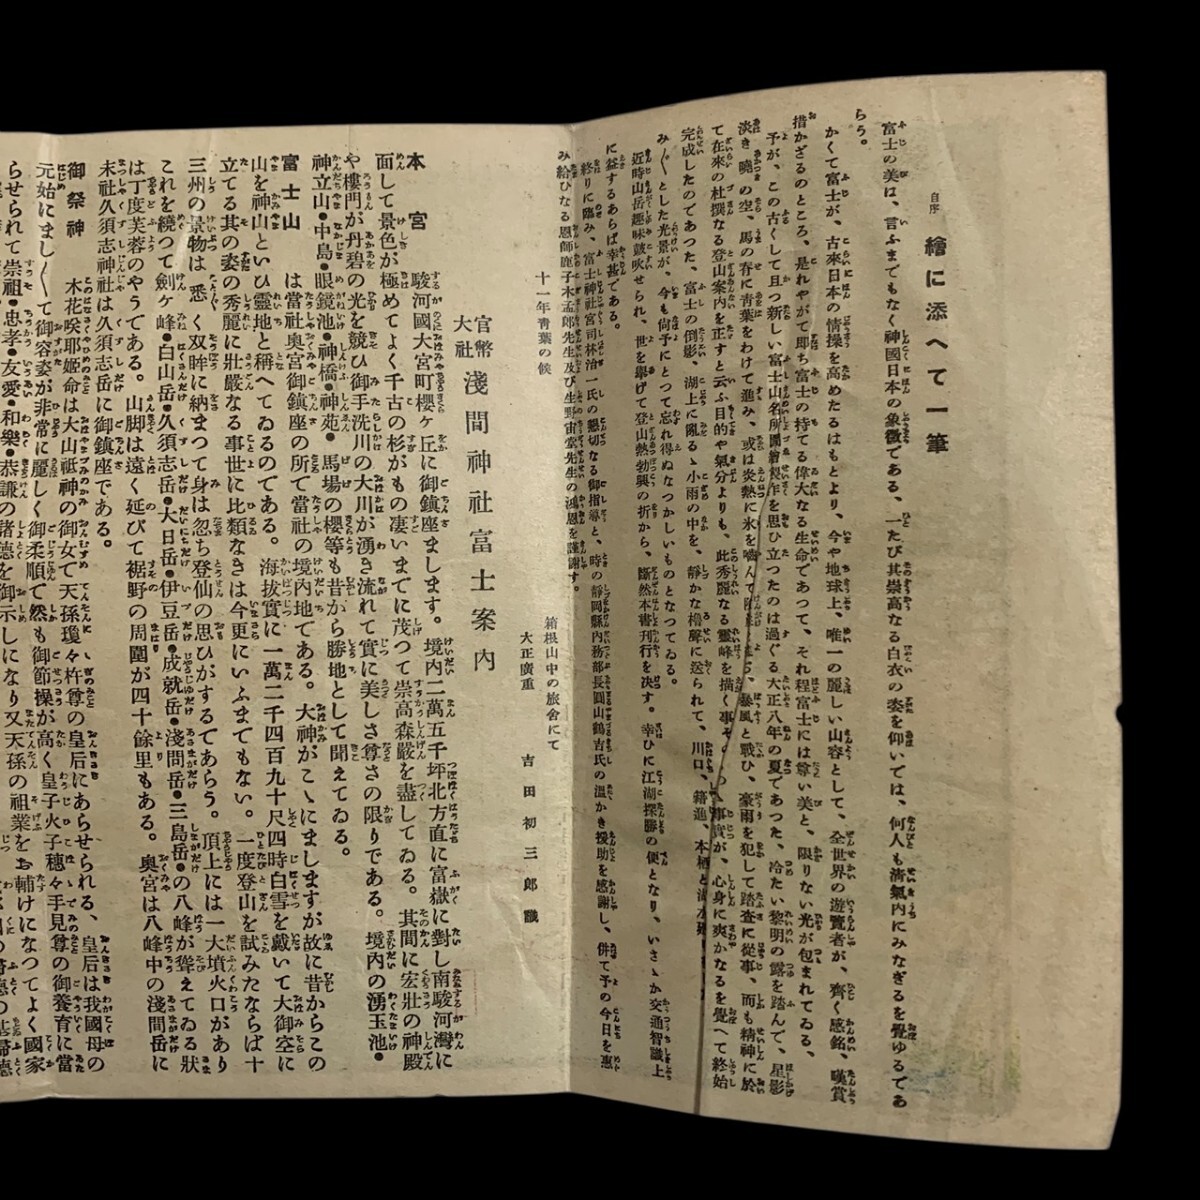 自序 繪に添へて一筆
富士の美は、言ふまでもなく神國日本の象徴である、一たび其崇高なる白衣の姿を仰いでは、何人も清氣内にみなぎるを覺ゆるであ
らう。
かくて富士が、古來日本の情操を高めたるはもとより、今や地球上、唯一の麗しい山容として、全世界の遊覽者が、齊く感銘、嘆賞
措かざるのところ、是れやがて即ち富士の持てる偉大なる生命であつて、それ程富士には尊い美と、限りない光が包まれてゐる、
予が、この古くして且つ新しい富士山名所圖繪製作を思ひ立つたのは過ぐる大正八年の夏であつた、冷たい黎明の露を踏んで、星影
淡き曉の空、馬の脊に青葉をわけて進み、或は炎熱に氷を嚙んで暴風と戰ひ、豪雨を犯して踏査に從事、而も精神に於
て在來の杜撰なる登山案内を正すと云ふ目的や氣分よりも、此秀麗なる靈峰を描く事その事實が、心身に爽かなるを覺へて終始
完成したのであつた、富士の倒影、湖上に亂るゝ小雨の中を、靜かな櫓聲に送られて、川口、精進、本栖と
み〲とした光景が、今も尚予にとつて忘れ得ぬなつかしいものとなつてゐる。
近時山岳趣味鼓吹せられ、世を擧げて登山熱勃興の折から、斷然本書刊行を決す。幸ひに江湖探勝の便となり、いさゝか交通智識上
に益するあらば幸甚である。
終りに臨み、富士神社宮司林治一氏の懇切なる御指導と、時の靜岡縣内務部長圓山鶴吉氏の溫かき援助を感謝し、併て予の今日を惠
み給ひなる恩師鹿子木孟郎先生及び生野宙堂先生の鴻恩を謹謝す。
十一年青葉の候
箱根山中の旅舍にて
大正廣重 吉田初三郎識
官幣大社 淺間神社富士案内
本宮 駿河國大宮町櫻ヶ丘に御鎮座まします。境内二萬五千坪北方直に富嶽に對し南駿河灣に
面して景色が極めてよく千古の杉がもの凄いまでに茂つて崇高森嚴を盡してゐる。其間に宏壯の神殿
や樓門が丹碧の光を競ひ御手洗川の大川が湧き流れて實に美しさ尊さの限りである。境内の湧玉池●
神立山●中島●眼鏡池●神橋●神苑●馬場の櫻等も昔から勝地として聞えてゐる。
富士山 は當社奧宮御鎮座の所で當社の境内地である。大神がこゝにましますが故に昔からこの
山を神山といひ靈地と稱へてゐるのである。海拔實に一萬二千四百九十尺四時白雪を戴いて大御空に
立てる其の姿の秀麗に壯嚴なる事世に比類なきは今更にいふまでもない。一度登山を試みたならば十
三州の景物は悉く双眸に納まつて身は忽ち登仙の思ひがするであらう。頂上には一大墳火口があり
これを繞つて劍ヶ峰●白山岳●久須志岳●大日岳●伊豆岳●成就岳●淺間岳●三島岳●の八峰が聳えてゐる狀
は丁度芙蓉のやうである。山脚は遠く延びて裾野の周圍が四十餘里もある。奧宮は八峰中の淺間岳に
末社久須志神社は久須志岳に御鎮座である。
御祭神 木花咲耶姬命は大山祗神の御女で天孫瓊々杵尊の皇后にあらせられる、皇后は我國母の
元始にまし〱て御容姿が非常に麗しく御柔順で然も御節操が高く皇子火子穗々手見尊の御養育に當
らせられて崇祖●忠孝●友愛●和樂●恭謙の諸德を御示しになり又天孫の祖業をお輔けになつてよく國家